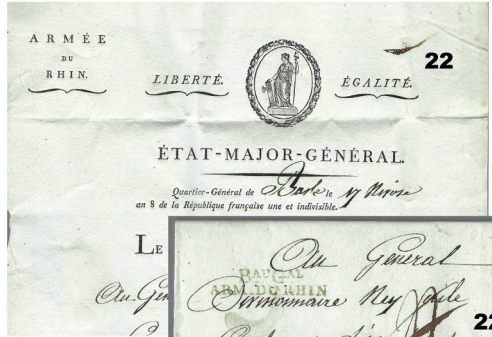 ARMÉE
DU
RHIN.
22
LIBERTÉ.
ÉGALITÉ.
ÉTAT-MAJOR-GÉNÉRAL.
Quartier-Général de Basle le 17 Nivose
an 8 de la République française une et indivisible.
LE
Au Gén
Au Général
BAU GAL
ARM. DU RHIN
Divisionnaire Ney
22